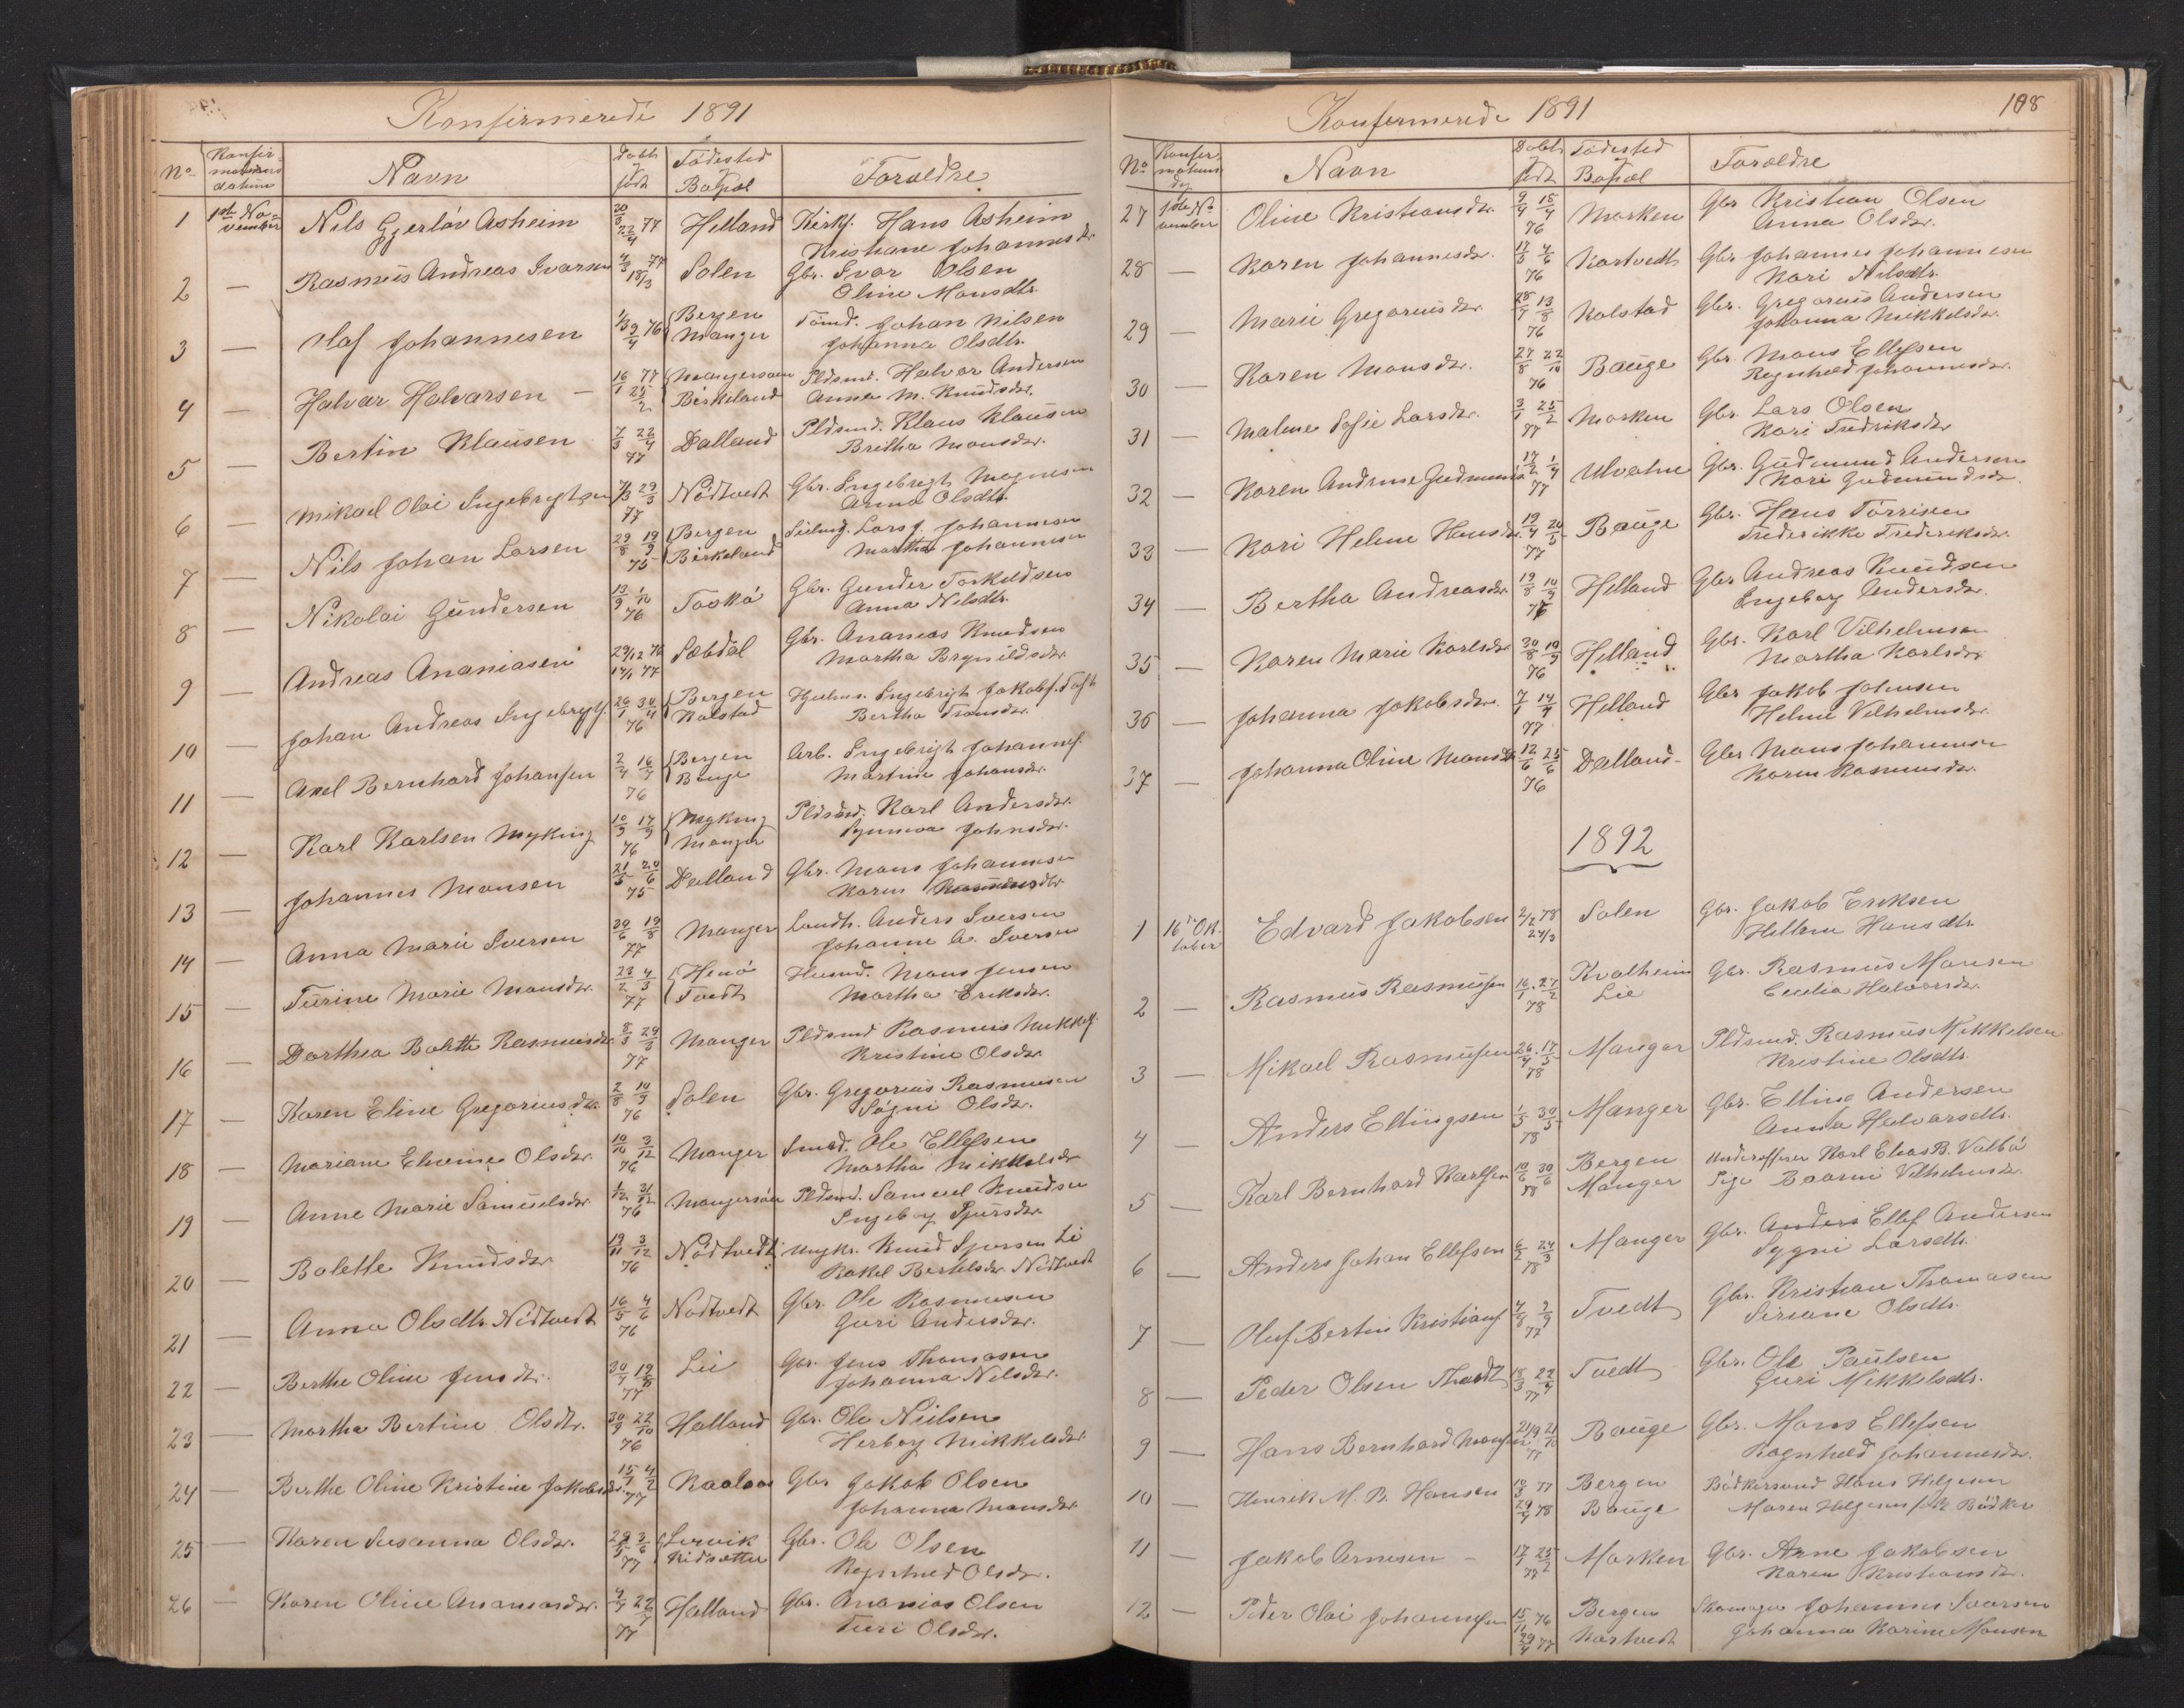 Konfirmerede 1891
No
Konfirmationsdatum
Navn
Døbt
født
Fødested
Bopæl
Forældre
1 1ste November Nils Gjerløv Asheim 77 Helland Kirks. Hans Asheim
Kristiane Johannesdr
2 — Rasmus Andreas Ivarsen 4/3 77 18/3 Solen Gbr. Ivar Olsen
Oline Monsdtr.
3 — Olaf Johannesen 76 Bergen Tømd. Johan Nilsen
Manger Johanna Olsdtr.
4 — Halvar Halvarsen — 16/1 77 25/2 Mangersøen Pldsmd. Halvor Andersen
Birkeland Anna M. Knudsdr.
5 — Bertin Klausen 7/3 22/4 77 Dalland Pldsmd. Klaus Klausen
Britha Monsdr.
6 — Mikael Olai Ingebrigtsen 7/3 29/3 77 Nødtvedt Gbr. Ingebrigt Magnesen
Anna Olsdtr.
7 — Nils Johan Larsen 29/8 19/9 75 Bergen Lars J. Johannesen
Birkeland Martha Johannesen
8 — Nikolai Gundersen 13/9 1/10 76 Toskø Gbr. Gunder Torkildsen
Anna Nilsdtr.
9 — Andreas Ananiasen 29/12 76 14/1 77 Sæbdal Gbr. Ananias Knudsen
Martha Brynildsdr
10 — Johan Andreas Ingebrigts. 76 Bergen Ingebrigt Jakobs. Toft
Kalstad Bertha Monsdr.
11 — Axel Bernhard Johansen 76 Bergen Arb. Ingebrigt Johannes.
Bauge Martine Johansdr.
12 — Karl Karlsen Myking 10/9 17/9 76 Myking Pldsmd. Karl Andersdr.
Manger Synneva Johnsdr.
13 — Johannes Monsen 21/5 20/6 75 Dalland Gbr. Mons Johannesen
Karen Rasmusdtr
14 — Anna Marie Iversen 30/6 19/8 77 Manger Landh. Anders Iversen
Johanne A. Iversen
15 — Turine Marie Monsdr. 23/2 4/3 77 Henø Husmd. Mons Jensen
Tvedt Martha Eriksdr.
16 — Dorthea Bolette Rasmusdr. 8/3 29/3 77 Manger Pldsmd Rasmus Mikkels.
Kristine Olsdr.
17 — Karen Eline Gregoriusdr. 2/8 10/9 76 Solen Gbr. Gregorius Rasmusen
Søgni Olsdr.
18 — Mariane Olsdr. 10/10 3/12 76 Manger Smed. Ole Ellefsen
Martha Mikkelsdr
19 — Anne Marie Samuelsdr. 1/12 31/12 76 Mangersøen Pldsmd. Samuel Knudsen
Ingeborg Sjursdr.
20 — Bolette Knudsdr 19/11 3/12 76 Nødtvedt Ungkr. Knud Sjursen Li
Rakel Bertelsdr. Nødtvedt
21 — Anna Olsdtr. Nødtvedt 16/5 4/6 76 Nødtvedt Gbr. Ole Rasmusen
Guri Andersdr.
22 — Berthe Oline Jensdr. 77 Lie Gbr. Jens Thomasen
Johanna Nilsdr.
23 — Martha Bertine Olsdr. 30/9 22/10 76 Halland Gbr. Ole Nilsen
Herborg Mikkelsdr
24 — Berthe Oline Kristine Jakobsdr. 15/1 4/2 77 Kaalaas Gbr Jakob Olsen
Johanna Monsdr
25 — Karen Susanna Olsdr. 77 Lervik Gbr. Ole Olsen
Kidsætter Ragnhild Olsdr.
26 — Karen Oline Ananiasdr. 77 Halland Gbr. Ananias Olsen
Turi Olsdr.
108
Konfirmerede 1891
No
Konfirmationsdag
Navn
Døbt
født
Fødested
Bopæl
Forældre
27 1ste November Oline Kristiansdr. 76 Marken Gbr Kristian Olsen
Anna Olsdr.
28 — Karen Johannesdr. 17/5 4/6 76 Kartvedt Gbr Johannes Johannesen
Kari Nilsdtr.
29 — Marie Gregoriusdr. 28/7 13/8 76 Kalstad Gbr. Gregorius Andersen
Johanna Mikkelsdr.
30 — Karen Monsdr. 27/8 22/10 76 Bauge Gbr. Mons Ellefsen
Ragnhild Johannesdr.
31 — Malene Sofie Larsdr. 3/1 25/2 77 Marken Gbr. Lars Olsen
Kari Fredriksdr
32 — Karen Andrine Gudmunds. 77 Ulvatne Gbr. Gudmund Andersen
Kari Gudmundsdr.
33 — Kari Helene Hansdr. 19/4 20/5 77 Bauge Gbr. Hans Tørrisen
Frederikke Frederiksdr.
34 — Bertha Andreasdr. 19/8 10/9 76 Helland Gbr Andreas Knudsen
Ingeborg Andersdr.
35 — Karen Marie Karlsdr 30/8 10/9 76 Helland Gbr. Karl Vilhelmsen
Martha Karlsdr.
36 — Johanna Jakobsdr. 77 Helland Gbr Jakob Johnsen
Helene Vilhelmsdr.
37 — Johanna Oline Monsdr 12/6 25/6 76 Dalland Gbr Mons Johannesen
Karen Rasmusdr.
1892
1 16de Oktober Edvard Jakobsen 2/2 78 24/3 Solen Gbr. Jakob Eriksen
Hansdtr.
2 — Rasmus Rasmusen 16/1 27/2 78 Kvalheim Gbr. Rasmus Monsen
Lie Cecilia Halvorsdr.
3 — Mikael Rasmusen 26/4 17/5 78 Manger Pldsmd. Rasmus Mikkelsen
Kristine Olsdtr.
4 — Anders Ellingsen 1/5 30/5 78 Manger Gbr. Elling Andersen
Anna Halvarsdtr.
5 — Karl Bernhard Karlsen 10/6 30/6 78 Bergen Underofficer Karl Elias B. Valbø
Manger Pige Vilhelmsdr.
6 — Anders Johan Ellefsen 6/2 24/3 78 Manger Gbr. Anders Ellef Andersen
Sygni Larsdtr.
7 — Oluf Bertin Kristians 4/8 2/9 77 Tvedt Gbr. Kristian Thomasen
Siriane Olsdtr.
8 — Peder Olsen Tvedt 18/3 22/4 77 Tvedt Gbr. Ole Paulsen
Guri Mikkelsdtr.
9 — Hans Bernhard Monsen 21/9 21/10 77 Bauge Gbr. Mons Ellefsen
Ragnhild Johannesdr.
10 — Henrik M. B. Hansen 77 78 Bergen Bødkersvend Hans Helgesen
Bauge Maren Helgesen
11 — Jakob Arnesen — 77 Marken Gbr. Arne Jakobsen
Karen Kristiansdr.
12 — Peder Olai Johannesen 15/11 76 77 Bergen Skomager Johannes Ivarsen
Kartvedt Johanna Karine Monsen